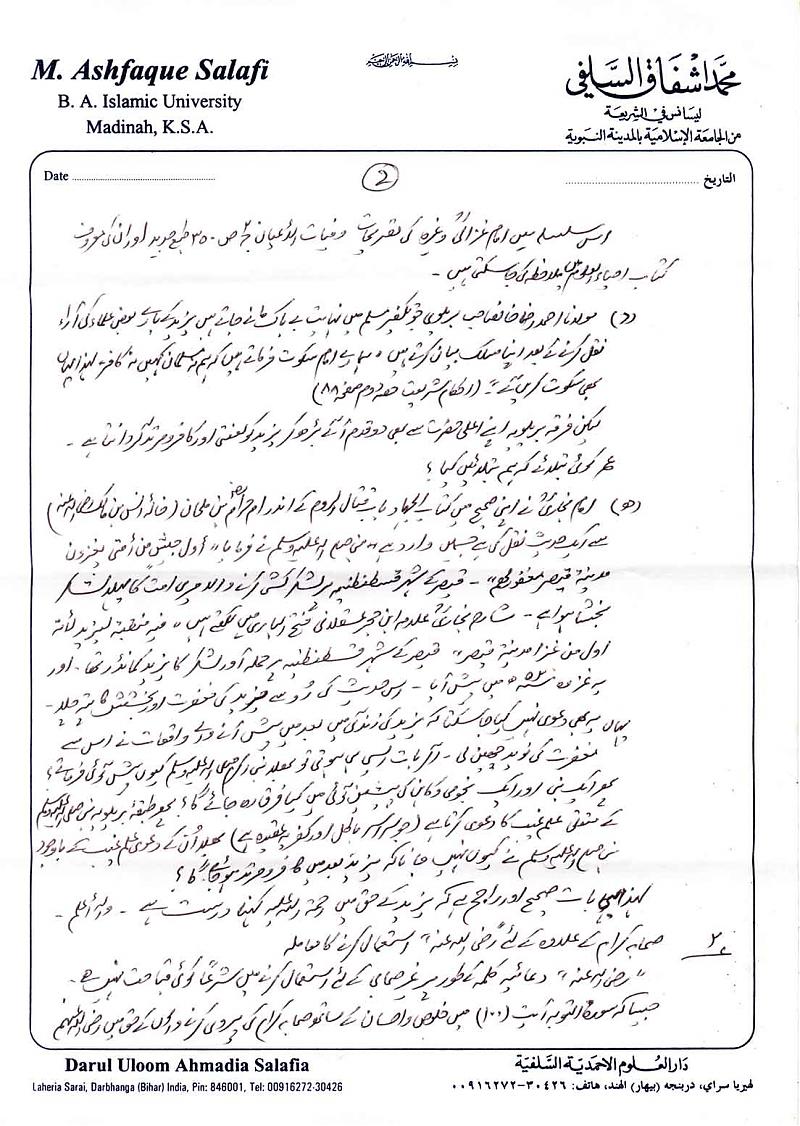 M. Ashfaque Salafi
B. A. Islamic University
Madinah, K.S.A.
محمد اشفاق السلفي
ليسانس في الشريعة
من الجامعة الإسلامية بالمدينة النبوية
Date
2
التاريخ
اس سلسلہ میں امام غزالیؒ وغیرہ کی تصریحات وفیات الاعیان ج۲ ص ۳۵۰ طبع جدید اور ان کی معروف
کتاب احیاء العلوم میں ملاحظہ کی جاسکتی ہیں ۔
(د) مولانا احمد رضا خانصاحب بریلوی جو تکفیر مسلم میں نہایت بے باک مانے جاتے ہیں یزید کے بارے بعض علماء کی آراء
نقل کرنے کے بعد اپنا مسلک بیان کرتے ہیں ، ہمارے امام سکوت فرماتے ہیں کہ ہم نہ مسلمان کہیں نہ کافر لہذا یہاں
بھی سکوت کریں گے ۔" (احکام شریعت حصہ دوم صفحہ ۸۸)
لیکن فرقہ بریلویہ اپنے اعلی حضرت سے بھی دو قدم آگے بڑھ کر یزید کو لعنتی اور کافر و مرتد گردانتا ہے ۔
ع کوئی بتلائے کہ ہم بتلائیں کیا ؟
(ھ) امام بخاریؒ نے اپنی صحیح میں کتاب الجہاد باب قتال الروم کے اندر ام حرامؓ بن ملحان (خالہ انس بن مالک رضی اللہ عنہ)
سے ایک حدیث نقل کی ہے جس میں وارد ہے ، نبی صلی اللہ علیہ وسلم نے فرمایا " أول جيش من أمتي يغزون
مدينة قيصر مغفور لهم" ۔ قیصر کے شہر قسطنطنیہ پر لشکر کشی کرنے والا میری امت کا پہلا لشکر
بخشا ہوا ہے ۔ شارح بخاریؒ علامہ ابن حجر عسقلانی فتح الباری میں لکھتے ہیں " فيه منقبة ليزيد لأنه
اول من غزا مدينة قيصر" قیصر کے شہر قسطنطنیہ پر حملہ آور لشکر کا یزید کمانڈر تھا ۔ اور
یہ غزوہ سنہ ھ میں پیش آیا ۔ اس حدیث کی رو سے یزید کی مغفرت اور بخشش کا پتہ چلا ۔
یہاں یہ بھی دعوی نہیں کیا جاسکتا کہ یزید کی زندگی میں بعد میں پیش آنے والے واقعات نے اس سے
مغفرت کی نوید چھین لی ۔ اگر بات ایسی ہی ہوتی تو بھلا نبی اکرم صلی اللہ علیہ وسلم کیوں پیش گوئی فرماتے ؟
پھر ایک نبی اور ایک نجومی و کاہن کی پیشین گوئی میں کیا فرق رہ جائے گا ؟ پھر طبقۂ بریلویہ نبی صلی اللہ علیہ وسلم
کے متعلق علم غیب کا دعوی کرتا ہے (جو سراسر باطل اور کفریہ عقیدہ ہے) بھلا اُن کے دعوی علم غیب کے باوجود
نبی صلی اللہ علیہ وسلم نے کیوں نہیں جانا کہ یزید بعد میں کافر و مرتد ہو جائے گا ؟
لہذا یہی بات صحیح اور راجح ہے کہ یزید کے حق میں رحمۃ اللہ علیہ کہنا درست ہے ۔ واللہ أعلم ۔
۲ صحابہ کرام کے علاوہ کے لئے "رضی اللہ عنہ" استعمال کرنے کا معاملہ
"رضی اللہ عنہ" دعائیہ کلمہ کے طور پر غیر صحابی کے لئے استعمال کرنے میں شرعاً کوئی قباحت نہیں ہے ۔
جیسا کہ سورۃ التوبہ آیت (۱۰۰) میں خلوص و احسان کے ساتھ صحابہ کرام کی پیروی کرنے والوں کے حق میں رضی اللہ عنہم
Darul Uloom Ahmadia Salafia
Laheria Sarai, Darbhanga (Bihar) India, Pin: 846001, Tel: 00916272-30426
دار العلوم الاحمدية السلفية
لهيريا سراي، دربنجه (بيهار) الهند، هاتف: ٣٠٤٢٦-٠٠٩١٦٢٧٢